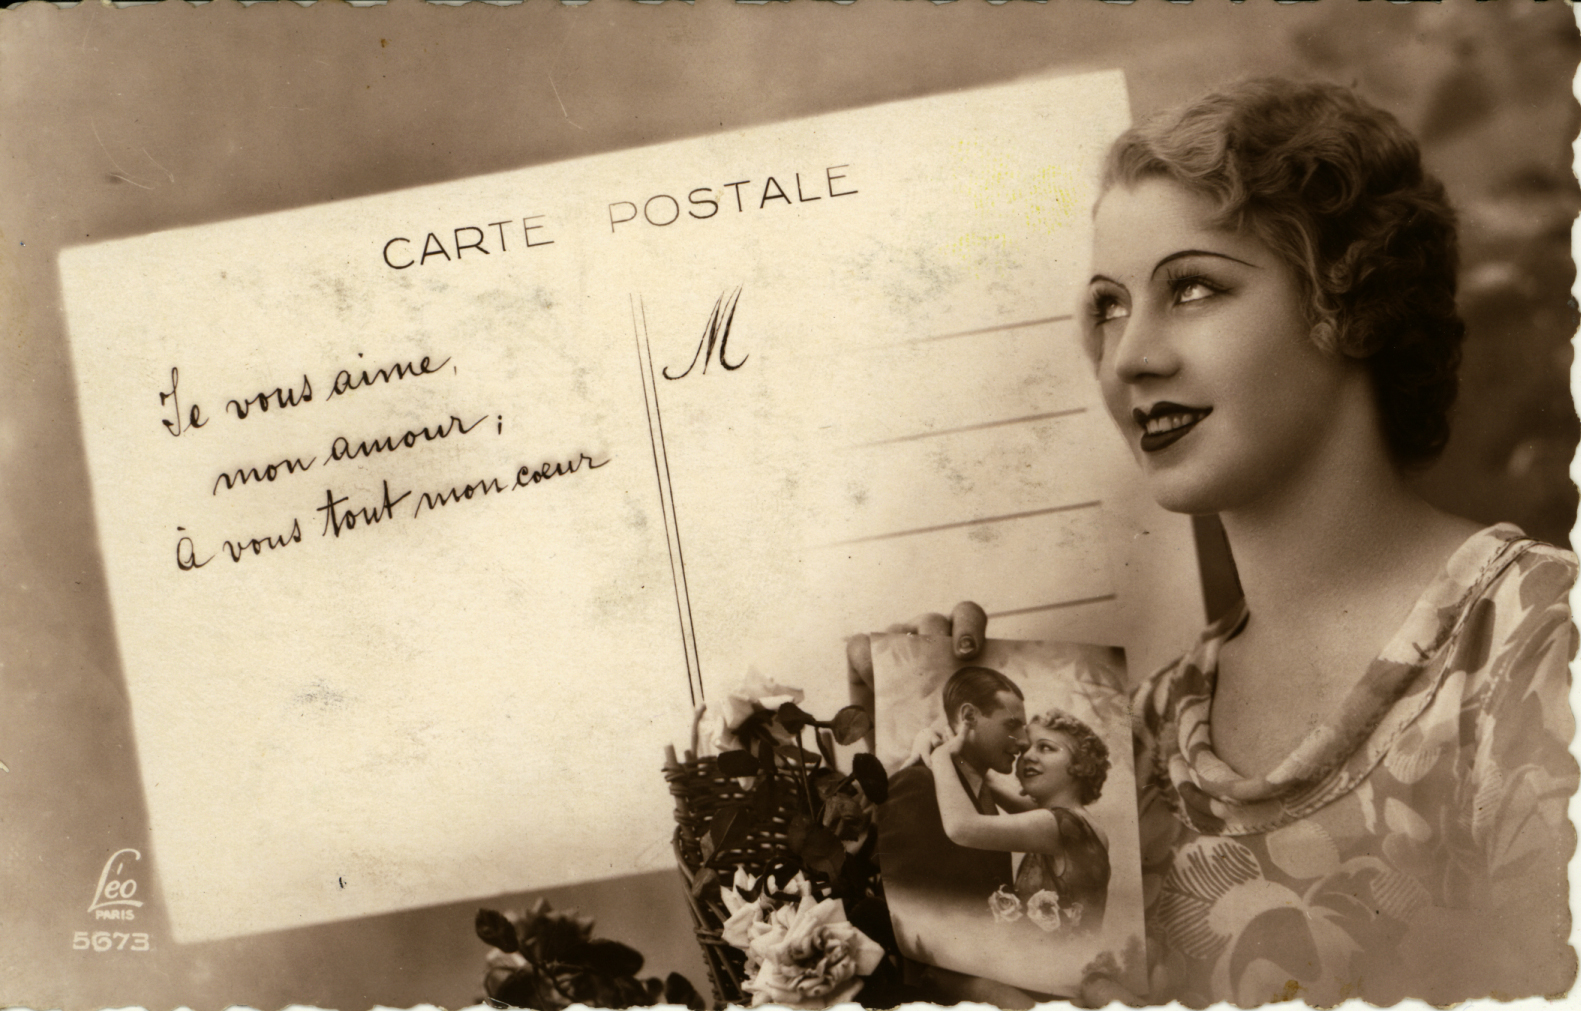 CARTE POSTALE
Je vous aime,
mon amour ;
À vous tout mon cœur
M
Léo
PARIS
5673